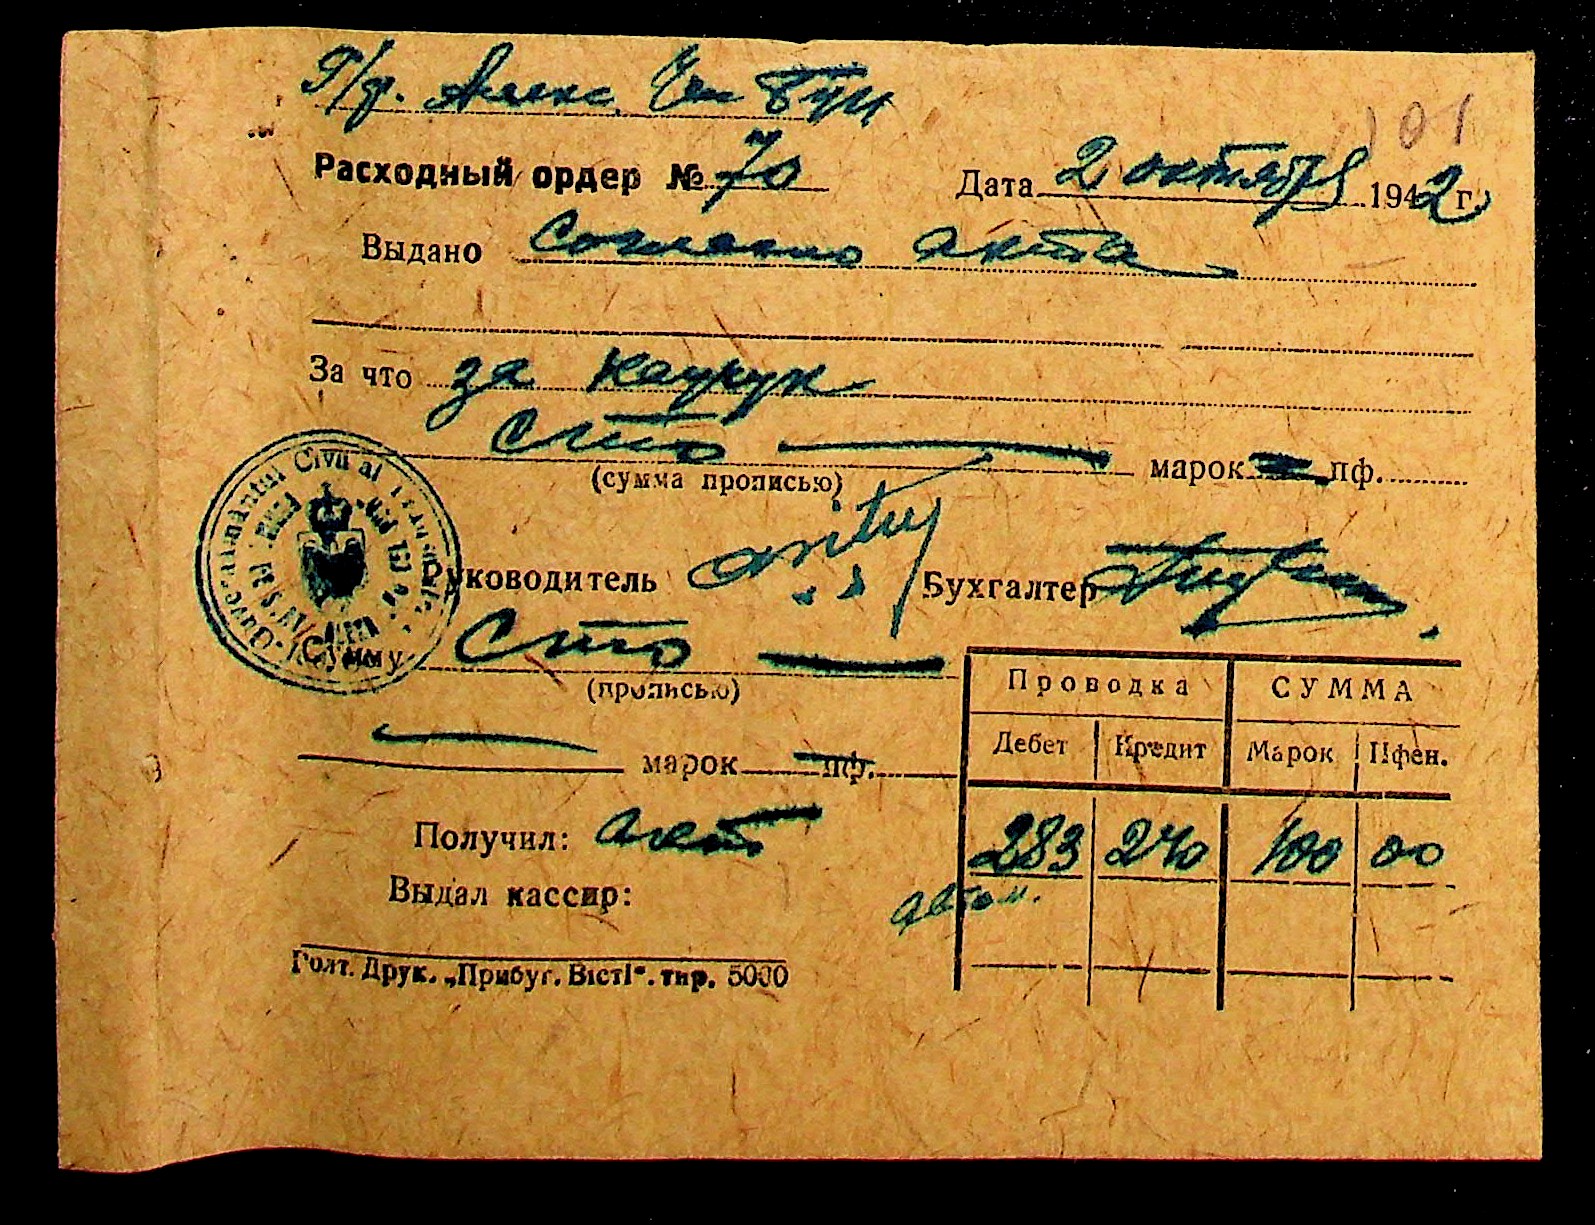 Г/ф. Алекс.
101
Расходный ордер № 70 Дата 2 октября 1942 г.
Выдано согласно акта
За что за каучук
сто — марок — пф.
(сумма прописью)
Guvernământul Civil al
Руководитель Бухгалтер
Сумму сто —
(прописью)
— марок — пф.
Проводка СУММА
Дебет Кредит Марок Пфен.
283 240 100 00
Получил: акт
автом.
Выдал кассир:
Голт. Друк. „Прибуг. Вісті“. тир. 5000